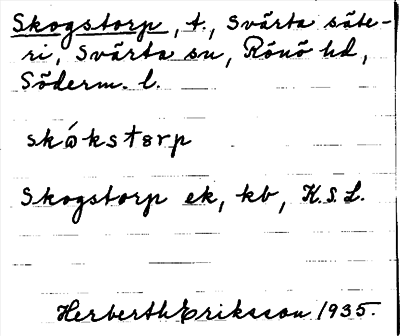 Skogstorp, t., Svärta säte-
ri, Svärta sn, Rönö hd,
Söderm. l.
skǿkstɵrp
Skogstorp ek, kb, K.S.L.
Herberth Eriksson 1935.